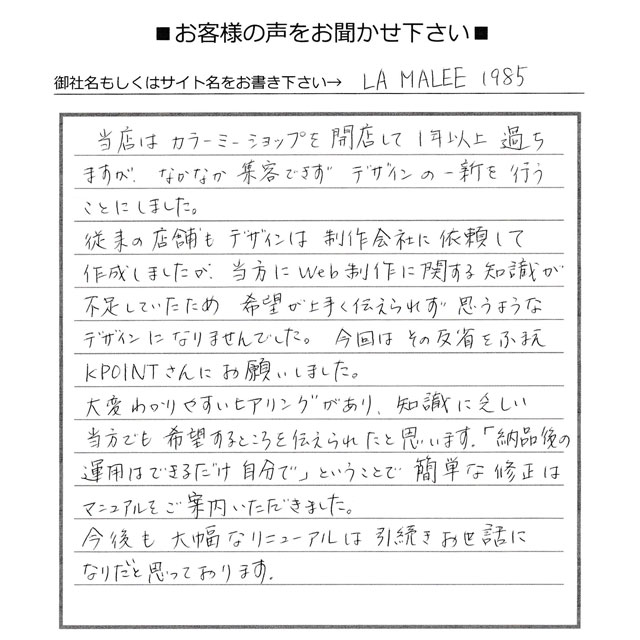 ■お客様の声をお聞かせ下さい■
御社名もしくはサイト名をお書き下さい→ LA MALEE 1985
当店は カラーミーショップを 開店して 1年以上 過ち
ますが、なかなか 集客できず デザインの一新を 行う
ことにしました。
従来の店舗も デザインは 制作会社に 依頼して
作成しましたが、当方に Web制作に関する知識が
不足していたため 希望が上手く伝えられず 思うような
デザインに なりませんでした。 今回は その反省をふまえ
KPOINTさんに お願いしました。
大変わかりやすいヒアリングがあり、知識に乏しい
当方でも 希望するところを伝えられたと思います。「納品後の
運用はできるだけ 自分で」ということで 簡単な修正は
マニュアルをご案内いただきました。
今後も 大幅なリニューアルは 引続きお世話に
なりだと思っております。